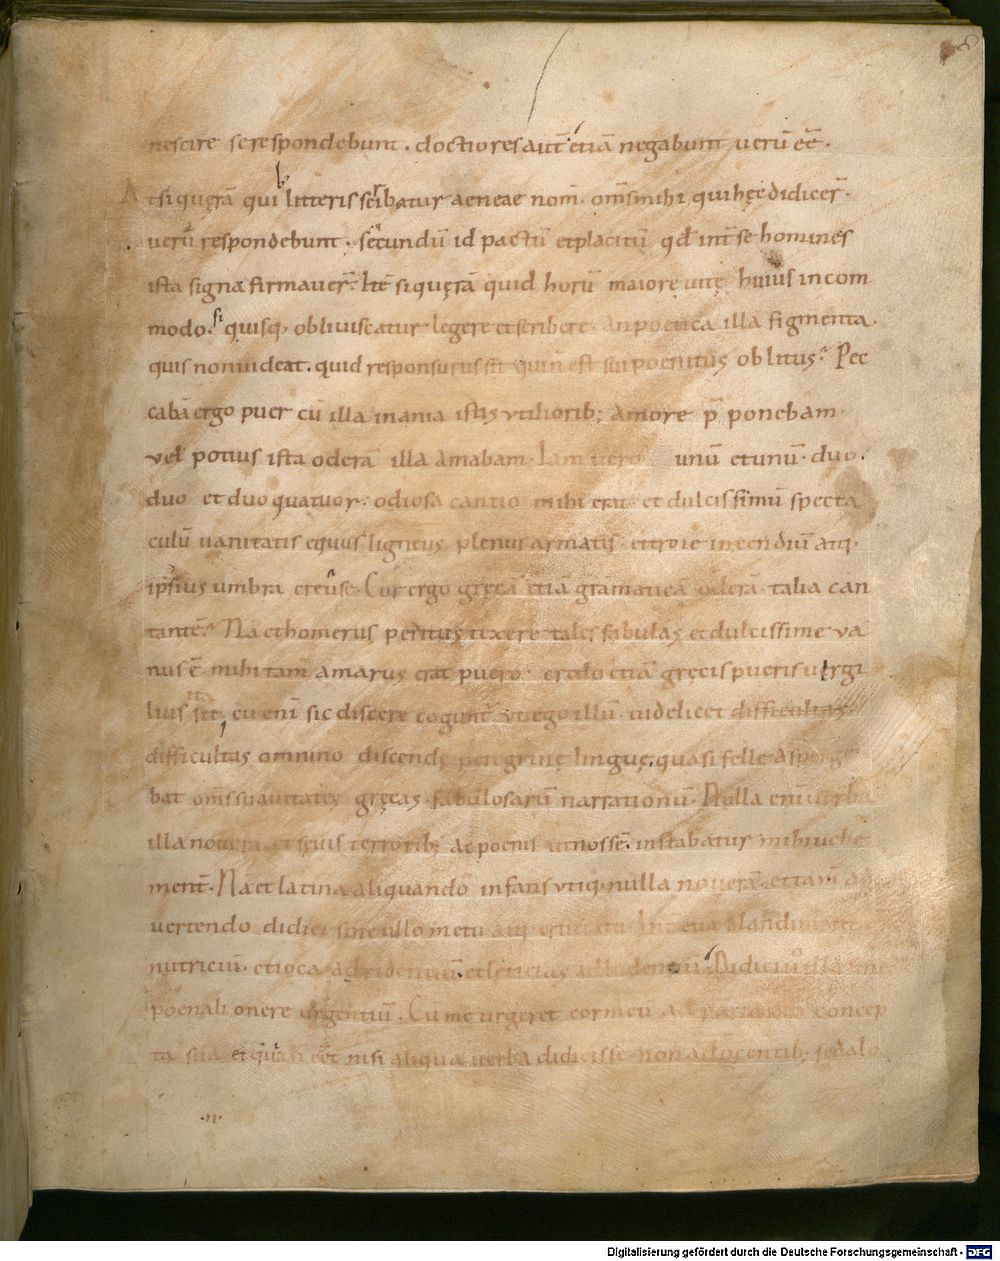 8
nescire se respondebunt. doctiores aut̄ etiā negabunt uerū eē̄.
At si quęrā qui b litteris scribatur aeneae nom̄. om̄s mihi qui hęc didicer̄.
uerū respondebunt. secundū id pactū et placitū qđ int̄ se homines
ista signa firmauer̄. Itē si quęrā quid horū maiore uitę huius incom
modo. si quisq; obliuiscatur legere et scribere. an poetica illa figmenta.
quis non uideat. quid responsurus sit qui n̄ est sui poenitus oblitus? Pec
cabā ergo puer cū illa inania istis vtiliorib; amore p̄ponebam.
vel potius ista oderā illa amabam. Iam uero unū et unū. duo.
duo et duo quatuor. odiosa cantio mihi erat. et dulcissimū specta
culū uanitatis equus ligneus plenus armatis. et troie incendiū atq;
ipsius umbra creuse. Cur ergo gręcā etiā gramaticā oderā talia can
tantē? Nā et homerus peritus texere tales fabulas et dulcissime va
nus ē. mihi tam̄ amarus erat puero. credo etiā gręcis pueris uergi
lius ita sit, cū eni sic discere cogunt̄ vt ego illū. uidelicet difficultas
difficultas omnino discendę peregrinę linguę, quasi felle asperge
bat om̄s suauitates gręcas fabulosarū narrationū. Nulla eni uerba
illa noueră et sęuis terrorib; ac poenis ut nossē. instabatur mihi uehe
ment̄. Nā et latina aliquando infans vtiq; nulla nouerā. et tam̄ ad
uertendo didici sine ullo metu atq; cruciatu. Int̄ etiā blandimenta
nutricū. et ioca adridentiū. et lętitias adludentiū. Didici uo illa sine
poenali onere urgentiū. Cū me urgeret cor meū ad parienda concep
ta sua et quā eēt nisi aliqua uerba didicisse non a docentib; sed a lo
Digitalisierung gefördert durch die Deutsche Forschungsgemeinschaft - DFG